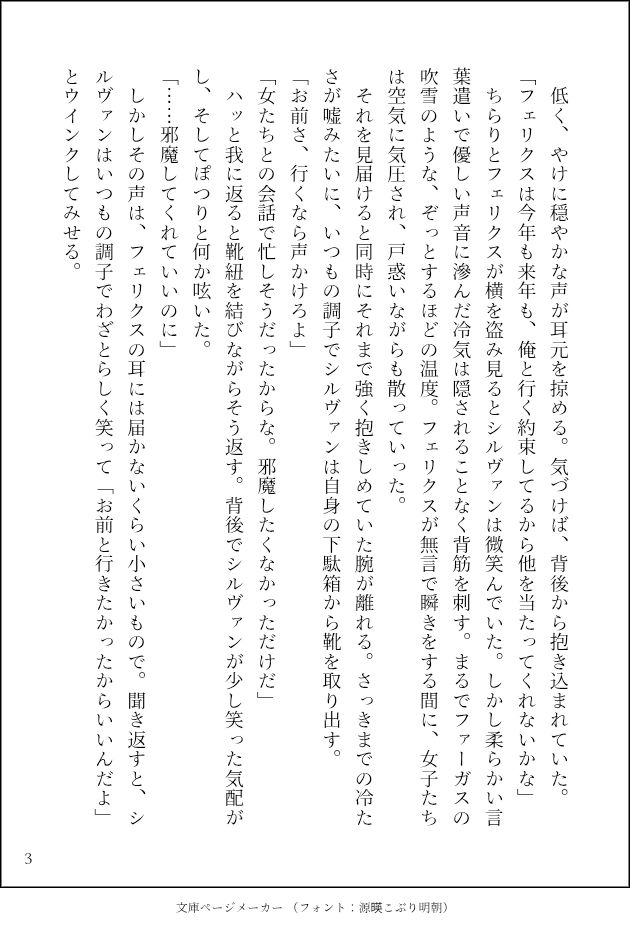 低く、やけに穏やかな声が耳元を掠める。気づけば、背後から抱き込まれていた。
「フェリクスは今年も来年も、俺と行く約束してるから他を当たってくれないかな」
ちらりとフェリクスが横を盗み見るとシルヴァンは微笑んでいた。しかし柔らかい言
葉遣いで優しい声音に滲んだ冷気は隠されることなく背筋を刺す。まるでファーガスの
吹雪のような、ぞっとするほどの温度。フェリクスが無言で瞬きをする間に、女子たち
は空気に気圧され、戸惑いながらも散っていった。
それを見届けると同時にそれまで強く抱きしめていた腕が離れる。さっきまでの冷た
さが嘘みたいに、いつもの調子でシルヴァンは自身の下駄箱から靴を取り出す。
「お前さ、行くなら声かけろよ」
「女たちとの会話で忙しそうだったからな。邪魔したくなかっただけだ」
ハッと我に返ると靴紐を結びながらそう返す。背後でシルヴァンが少し笑った気配が
し、そしてぽつりと何か呟いた。
「……邪魔してくれていいのに」
しかしその声は、フェリクスの耳には届かないくらい小さいもので。聞き返すと、シ
ルヴァンはいつもの調子でわざとらしく笑って「お前と行きたかったからいいんだよ」
とウインクしてみせる。
3
文庫ページメーカー（フォント：源暎こぶり明朝）